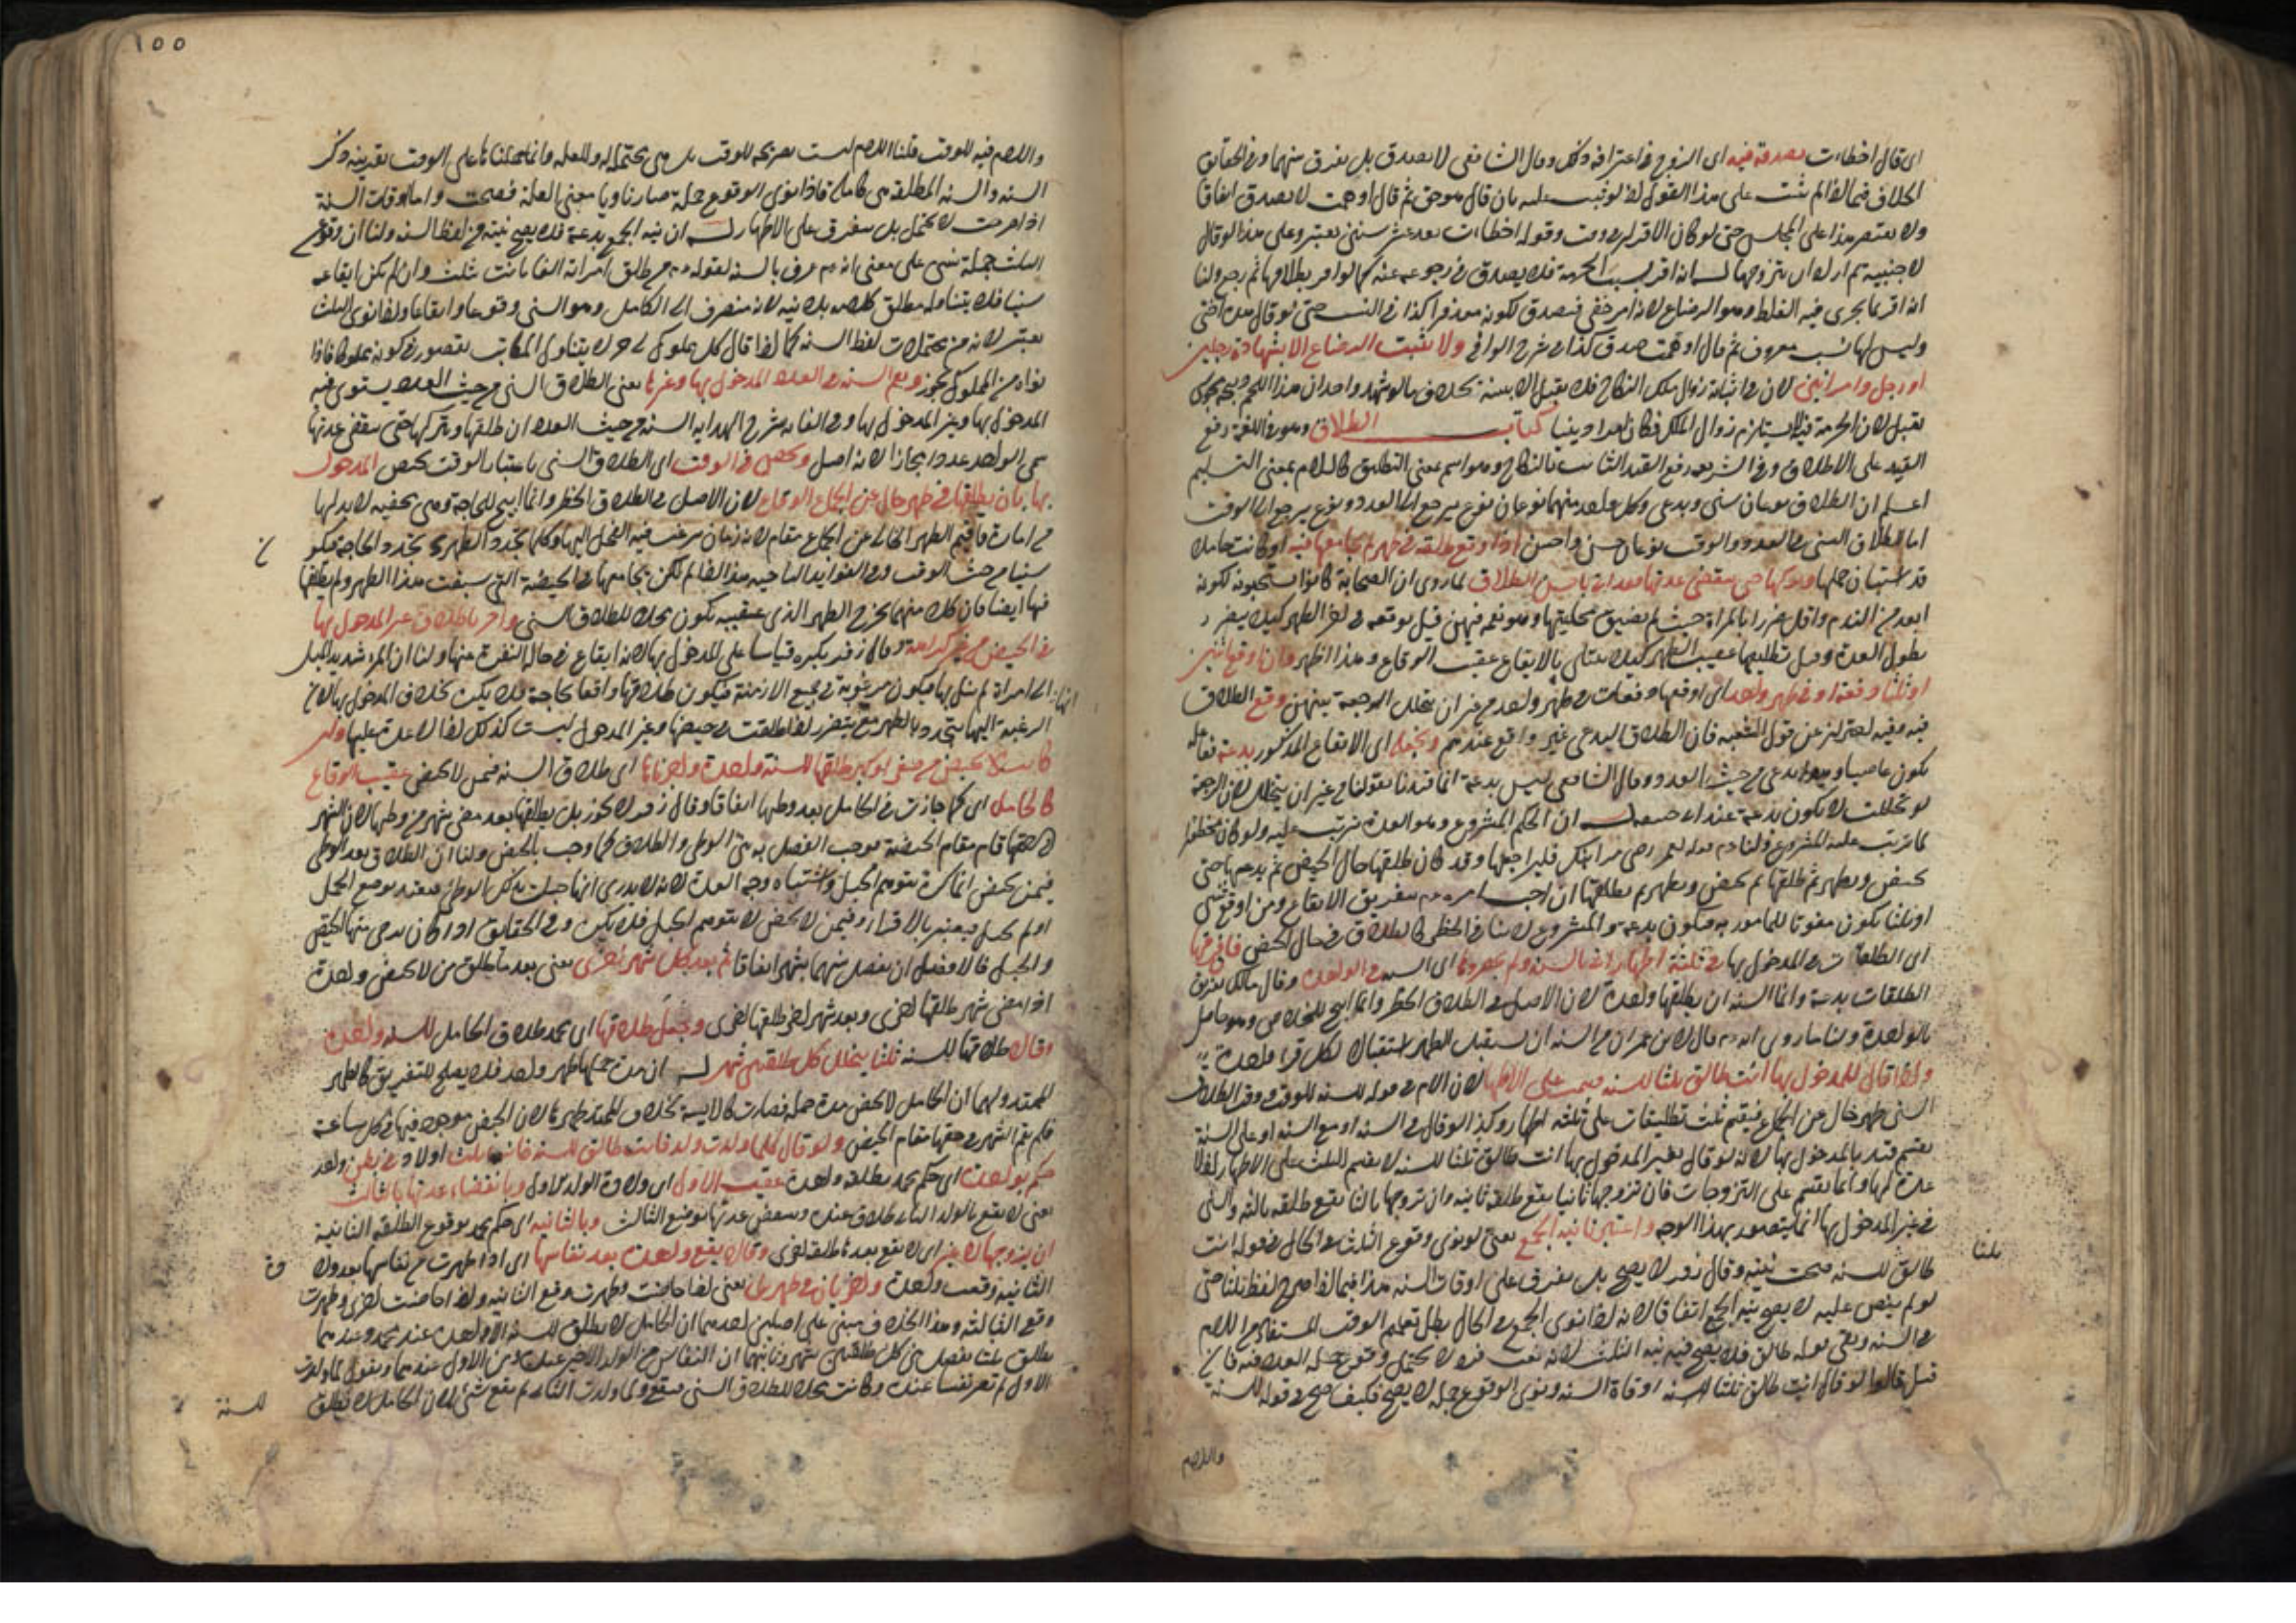 اى قال اخطاءت يصدق فيه اى الزوج فى اعترافه ذلك وقال الشافعى لا يصدق بل يفرق بينهما وفى الحقايق
الخلاف فيما اذا لم يثبت على هذا القول اذ لو ثبت عليه بان قال هو حق ثم قال اوهمت لا يصدق اتفاقا
ولا يقتصر هذا على المجلس حتى لو كان الاقرار فى وقت وقوله اخطاءت بعد عشر سنين يعتبر وعلى هذا لو قال
لاجنبية ثم اراد ان يتزوجها له انه اقر بسبب الحرمة فلا يصدق فى رجوعه عنه كما لو اقر بطلاقها ثم رجع ولنا
انه اقر بما يجرى فيه الغلط وهو الرضاع لانه امر خفى فيصدق لكونه معذورا كذا فى النسب حتى لو قال هذه اختى
وليس لها نسب معروف ثم قال اوهمت صدق كذا فى شرح الوافى ولا نثبت الرضاع الا بشهادة رجلين
او رجل وامراتين لان فى اثباته زوال ملك النكاح فلا يقبل الا ببينة بخلاف ما لو شهد واحد ان هذا اللحم ذبيحة مجوسى
يقبل لان الحرمة فيه لا يستلزم زوال الملك فكان امرا دينيا كتاب الطلاق وهو فى اللغة رفع
القيد على الاطلاق وفى الشريعة رفع القيد الثابت بالنكاح وهو اسم بمعنى التطليق كالسلام بمعنى التسليم
اعلم ان الطلاق نوعان سنى وبدعى وكل واحد منهما نوعان نوع يرجع الى العدد ونوع يرجع الى الوقت
اما الطلاق السنى فى العدد والوقت نوعان حسن واحسن اذا اوقع طلقة فى طهر لم يجامعها فيه او كانت حاملا
قد استبان حملها وتركها حتى تنقضى عدتها فقد اتى باحسن الطلاق لما روى ان الصحابة كانوا يستحبونه لكونه
ابعد من الندم واقل ضررا بالمراة حيث لم يضيق محليتها وهو نعم فيهن قيل يوقعه فى اخر الطهر كيلا يتضرر
بطول العدة وقيل تطليقها عقيب الطهر كيلا يبتلى بالايقاع عقيب الوقاع وهذا اظهر وان اوقع اثنتين
او ثلثا دفعة او فى طهر واحد اى اوقعها دفعات فى طهر واحد من غير ان يتخلل الرجعة بينهن وقع الطلاق
فيه وفيه احتراز عن قول الشيعة فان الطلاق البدعى غير واقع عندهم ونجعله اى الايقاع المذكور بدعة فاعله
يكون عاصيا وهو بدعى من حيث العدد وقال الشافعى ليس بدعة انما قيدنا بقولنا من غير ان يتخلل لان الرجعة
لو تخللت لا يكون بدعة عند ابى حنيفة له ان الحكم المشروع وهو العدة مرتب عليه ولو كان محظورا
لما ترتب عليه المشروع ولنا قوله لعمر رضى مر ابنك فليراجعها وقد كان طلقها حال الحيض ثم يدعها حتى
تحيض وتطهر ثم طلقها ثم تحيض وتطهر ثم يطلقها ان احب امره بتفريق الايقاع ومن اوقع ثنتين
او ثلثا يكون مفوتا للمأمور به فيكون بدعة والمشروع لا ينافى الحظر كالطلاق فى حال الحيض فانه فرقها
اى الطلقات فى المدخول بها فى ثلثة اطهار اتى بالسنة ولم نحصروها اى السنة فى الواحدة وقال مالك تفريق
الطلقات بدعة وانما السنة ان يطلقها واحدة لان الاصل فى الطلاق الحظر وانما ابيح للخلاص وهو حاصل
بالواحدة ولنا ما روى انه قال لابن عمر ان من السنة ان تستقبل الطهر استقبالا لكل قرء واحدة
واذا قال للمدخول بها انت طالق ثلثا للسنة قسمت على الاطهار لان اللام فى قوله للسنة للوقت ووقت الطلاق
السنى طهر خال عن الجماع فيقسم ثلث تطليقات على ثلثة اطهار وكذا لو قال فى السنة او مع السنة او على السنة
يقسم قيد بالمدخول بها لانه لو قال لغير المدخول بها انت طالق ثلثا للسنة لا يقسم الثلث على الاطهار اذ لا
عدة لها وانما يقسم على التزوجات فان تزوجها ثانيا يقع طلقة ثانية وان تزوجها ثالثا يقع طلقة ثالثة والسنى
فى غير المدخول بها انما يتصور بهذا الوجه واعتبرنا نية الجمع يعنى لو نوى وقوع الثلث فى الحال فى قوله انت
ثلثا
طالق للسنة صحت نيته وقال زفر لا يصح بل يفرق على اوقات السنة هذا فيما اذا صرح لفظ ثلثا حتى
لو لم ينص عليه لا يصح نية الجمع اتفاقا لانه اذا نوى الجمع فى الحال بطل تعميم الوقت المستفاد من اللام
فى السنة وبقى قوله طالق فلا يصح فيه نية الثلث لانه نعت فرد لا يحتمل وقوع جملة العدد فيه فان
قيل قالوا لو قال انت طالق ثلثا للسنة اوقات السنة ونوى الوقوع جملة لا يصح فكيف صح فى قوله للسنة
واللام
١٥٥
واللام فيه للوقت قلنا اللام ليست بصريحة للوقت بل هى يحتمله وللعلة وانما حملناها على الوقت بقرينة ذكر
السنة والسنة المطلقة هى كاملة فاذا نوى الوقوع جملة صار ناويا معنى العلة فصحت واما اوقات السنة
اذا صرحت لا يحتمل بل يتفرق على الاطهار له ان نية الجمع بدعة فلا يصح نيته من لفظ السنة ولنا ان وقوع
الثلث جملة سنى على معنى انه عرف بالسنة لقوله من طلق امراته الفا بانت بثلث وان لم يكن ايقاعه
سنيا فلا يتناوله مطلق كلامه بلا نية لانه منصرف الى الكامل وهو السنى وقوعا وايقاعا واذا نوى الثلث
يعتبر لانه من محتملات لفظ السنة كما اذا قال كل مملوك لى حر لا يتناول المكاتب لقصور فى كونه مملوكا فاذا
نواه من المملوك يجوز ونعم السنة فى العدد المدخول بها وغيرها يعنى الطلاق السنى من حيث العدد يستوى فيه
المدخول بها وغير المدخول بها وفى الغاية شرح الهداية السنة من حيث العدد ان طلقها ويتركها حتى تنقضى عدتها
سمى الواحد عددا مجازا لانه اصل ونخص فى الوقت اى الطلاق السنى باعتبار الوقت يختص المدخول
بها بان يطلقها فى طهر خال عن الجماع الوقاع لان الاصل فى الطلاق الحظر وانما ابيح للحاجة وهى خفية لا بد لها
من امارة فاقيم الطهر الخالى عن الجماع مقام لانه زمان يرغب فيه الفحل اليها وكلما تجدد الطهر تجدد الحاجة فيكون
سنيا من حيث الوقت وفى الفوائد التاجية هذا اذا لم يكن يجامعها فى الحيضة التى سبقت هذا الطهر ولم يطلقها
فيها ايضا فان كلا منهما يخرج الطهر الذى عقيبه يكون محلا للطلاق السنى واجزنا طلاق غير المدخول بها
فى الحيض من غير كراهة وقال زفر يكره قياسا على المدخول بها لانه ايقاع فى حالة النفرة عنها ولنا ان المرء شديد الميل
الى امراة لم ينل بها فيكون مرغوبة فى جميع الازمنة فيكون طلاقها واقعا لحاجة فلا يكره بخلاف المدخول بها لان
الرغبة اليها يتجدد بالطهر مع يتضرر اذا طلقت فى حيضها وغير المدخول ليست كذلك اذ لا عدة عليها ولو
كانت لا تحيض من صغر او كبر طلقها للسنة واحدة واجزناها اى طلاق السنة فيمن لا تحيض عقيب الوقاع
كالحامل اى كما جازت فى الحامل بعد وطئها اتفاقا وقال زفر لا يجوز بل يطلقها بعد مضى شهر من وطئها لان الشهر
فى حقها قام مقام الحيضة فوجب الفصل به بين الوطئ والطلاق كما وجب بالحيض ولنا ان الطلاق بعد الوطئ
فيمن تحيض انما كره لتوهم الحبل واشتباه وجه العدة لانه لا يدرى انها حبلت بذلك الوطئ فيعتد بوضع الحمل
او لم تحبل فيعتبر بالاقراء وفيمن لا تحيض لا يتوهم الحبل فلا يكره وفى الحقايق اذا كان يرجى منها الحيض
والحبل فالافضل ان يفصل بينهما بشهر اتفاقا ثم بعد كل شهر اخرى يعنى بعد ما طلق من لا تحيض واحدة
اذا مضى شهر طلقها اخرى وبعد شهر اخر طلقها اخرى وجعل طلاقها اى محمد طلاق الحامل للسنة واحدة
وقالا طلاقها للسنة ثلثا يتخلل كل طلقتين شهر له ان مدة حملها طهر واحد فلا يصلح للتفريق كالطهر
الممتد ولهما ان الحامل لا تحيض مدة حملها فصارت كالايسة بخلاف الممتد طهرها لان الحيض موجود فيها فى كل ساعة
فلم يقم الشهر فى حقها مقام الحيض ولو قال كلما ولدت ولدا فانت طالق للسنة فاتت بثلث اولاد فى بطن واحد
حكم بواحدة اى حكم محمد بطلقة واحدة عقيب الاول اى ولادة الولد الاول وبانقضاء عدتها بالثالث
يعنى لا يقع بالولد الثانى طلاق عنده وتنقضى عدتها بوضع الثالث وبالثانية اى حكم محمد بوقوع الطلقة الثانية
ان تزوجها لا غير اى لا يقع بعدها طلقة اخرى وقالا يقع واحدة بعد نفاسها اى اذا طهرت من نفاسها بعد ولادة
الثانية وقعت واحدة واخريان فى طهرين يعنى اذا حاضت وطهرت وقع الثانية واذا حاضت اخرى وطهرت
وقع الثالثة وهذا الخلاف مبنى على اصلين احدهما ان الحامل لا يطلق للسنة الا واحدة عند محمد وعندهما
يطلق ثلثا يفصل بين كل طلقتين شهر وثانيهما ان النفاس من الولد الاخير عنده ومن الاول عندهما ونقول لما ولدت
الاول لم تصر نفساء عنده وكانت محلا للطلاق السنى فيقع ولما ولدت الثانى لم يقع شئ لان الحامل لا يطلق
للسنة